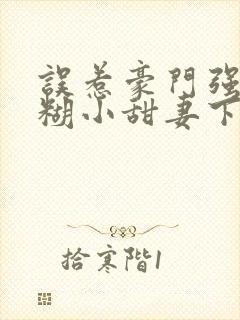 誤惹豪門强
糊小甜妻下
拾寒階1